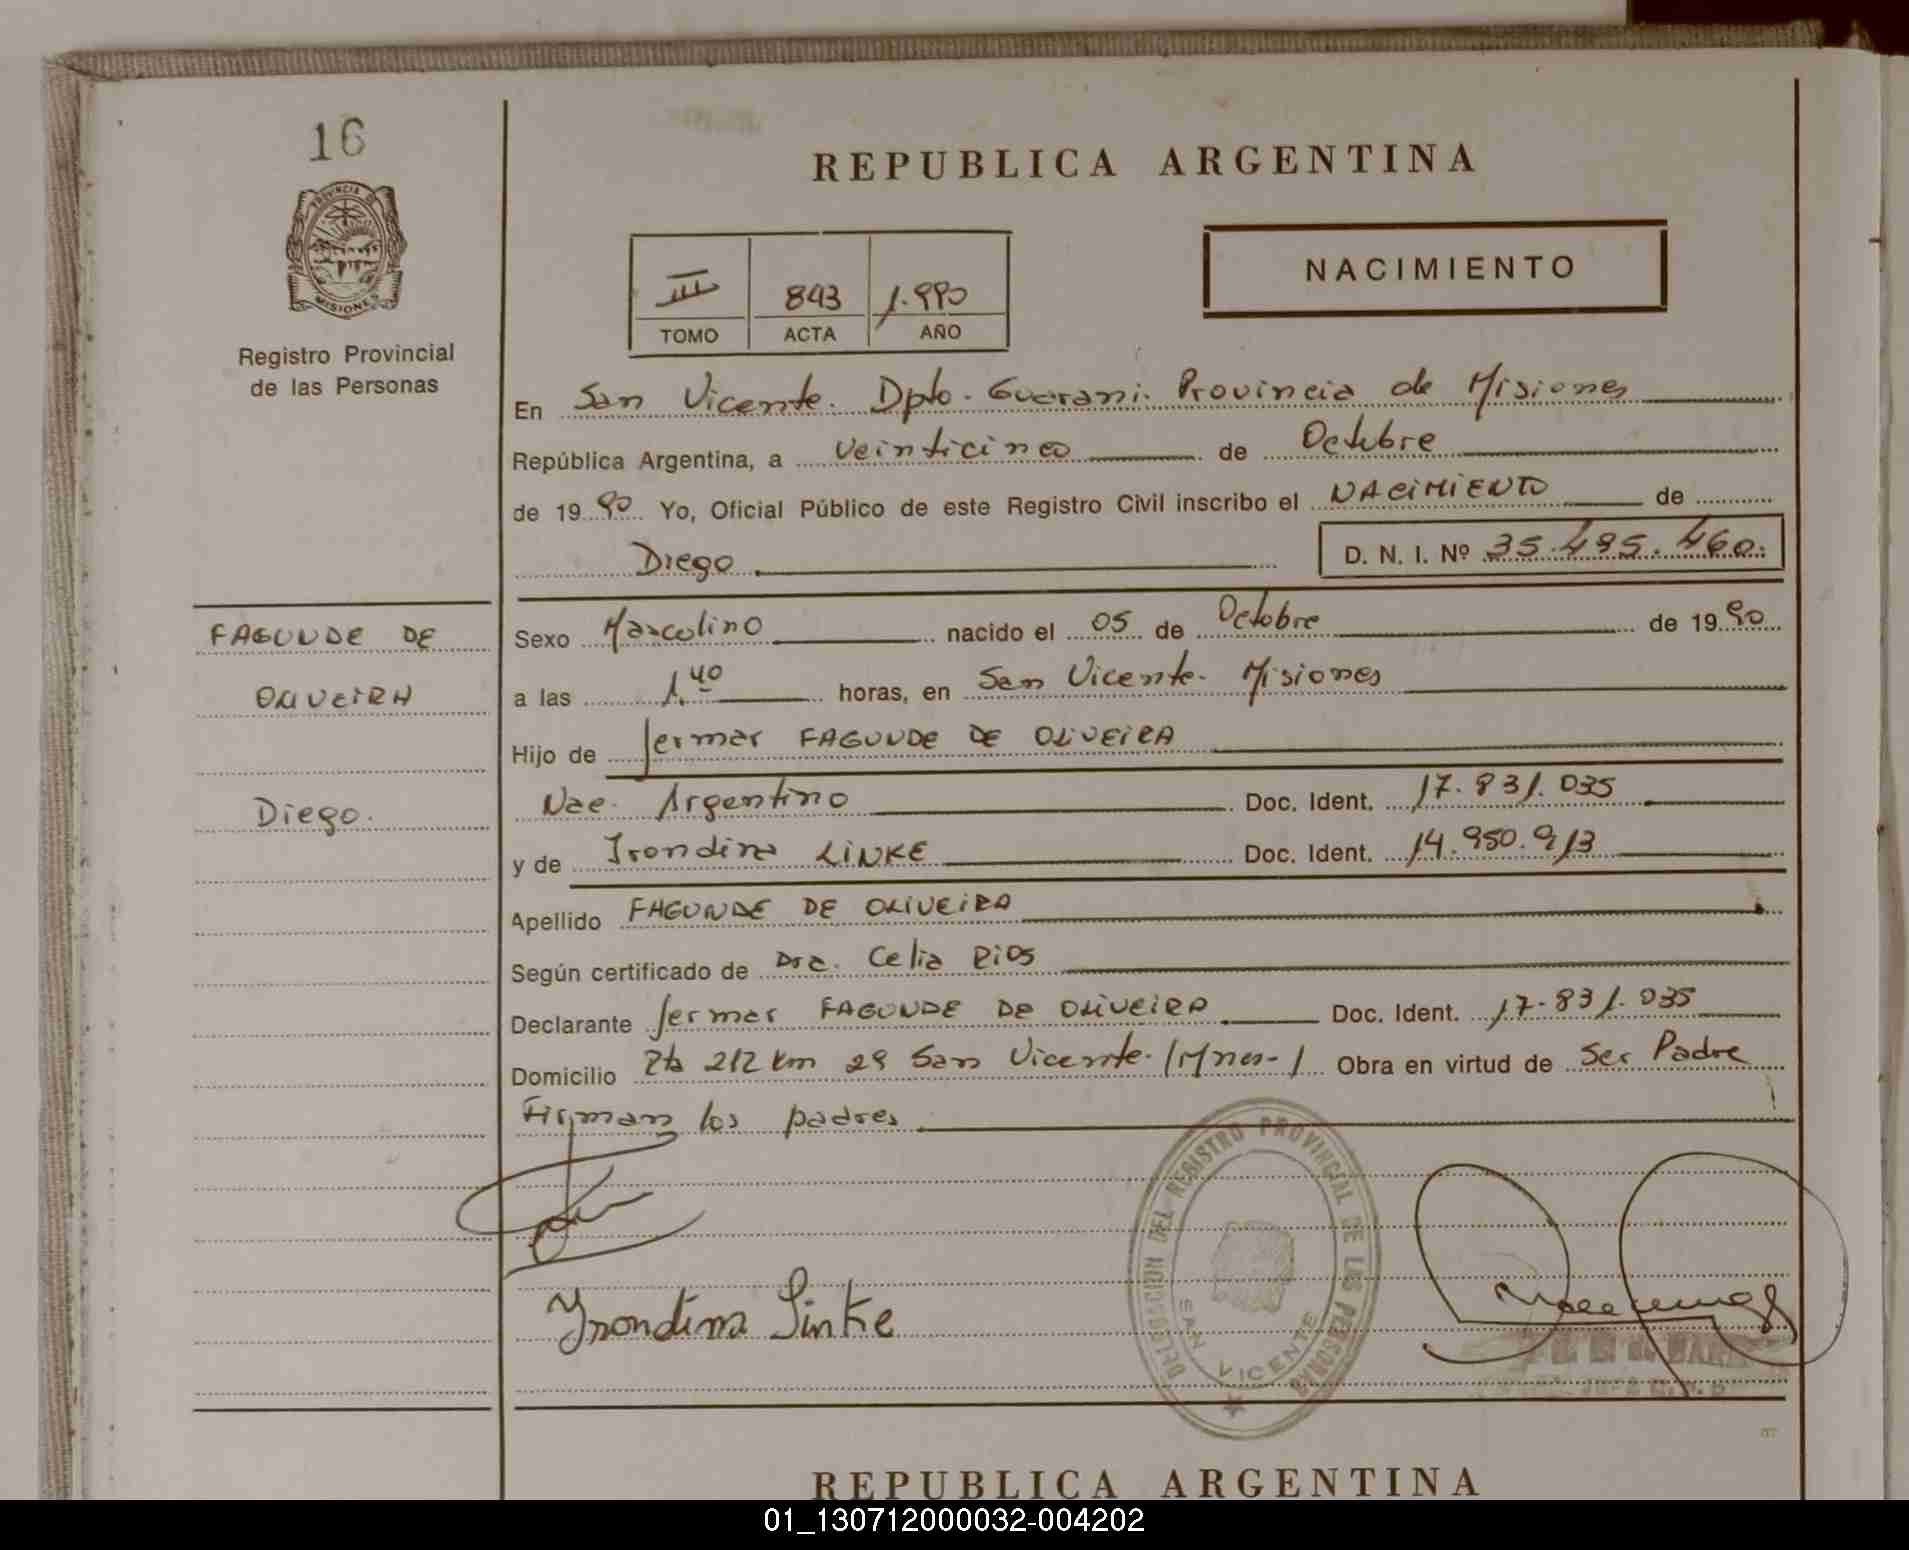 16
PROVINCIA DE
MISIONES
Registro Provincial
de las Personas
FAGUNDE DE
OLIVEIRA
Diego.
REPUBLICA ARGENTINA
III 843 1.990
TOMO ACTA AÑO
NACIMIENTO
En San Vicente. Dpto. Guarani. Provincia de Misiones
República Argentina, a veinticinco de Octubre
de 1990 Yo, Oficial Público de este Registro Civil inscribo el NACIMIENTO de
Diego D. N. I. Nº 35.495.460.
Sexo Masculino nacido el 05 de Octobre de 1990
a las 1.40 horas, en San Vicente. Misiones
Hijo de Jermar FAGUNDE DE OLIVEIRA
Nac. Argentino Doc. Ident. 17.831.035
y de Irondina LINKE Doc. Ident. 14.950.913
Apellido FAGUNDE DE OLIVEIRA
Según certificado de Dra. Celia RIOS
Declarante Jermar FAGUNDE DE OLIVEIRA Doc. Ident. 17.831.035
Domicilio Rta 212 km 29 San Vicente. (Mnes-) Obra en virtud de Ser Padre
Firman los padres
Irondina Linke
DELEGACION DEL REGISTRO PROVINCIAL DE LAS PERSONAS
SAN VICENTE
REPUBLICA ARGENTINA
01_130712000032-004202